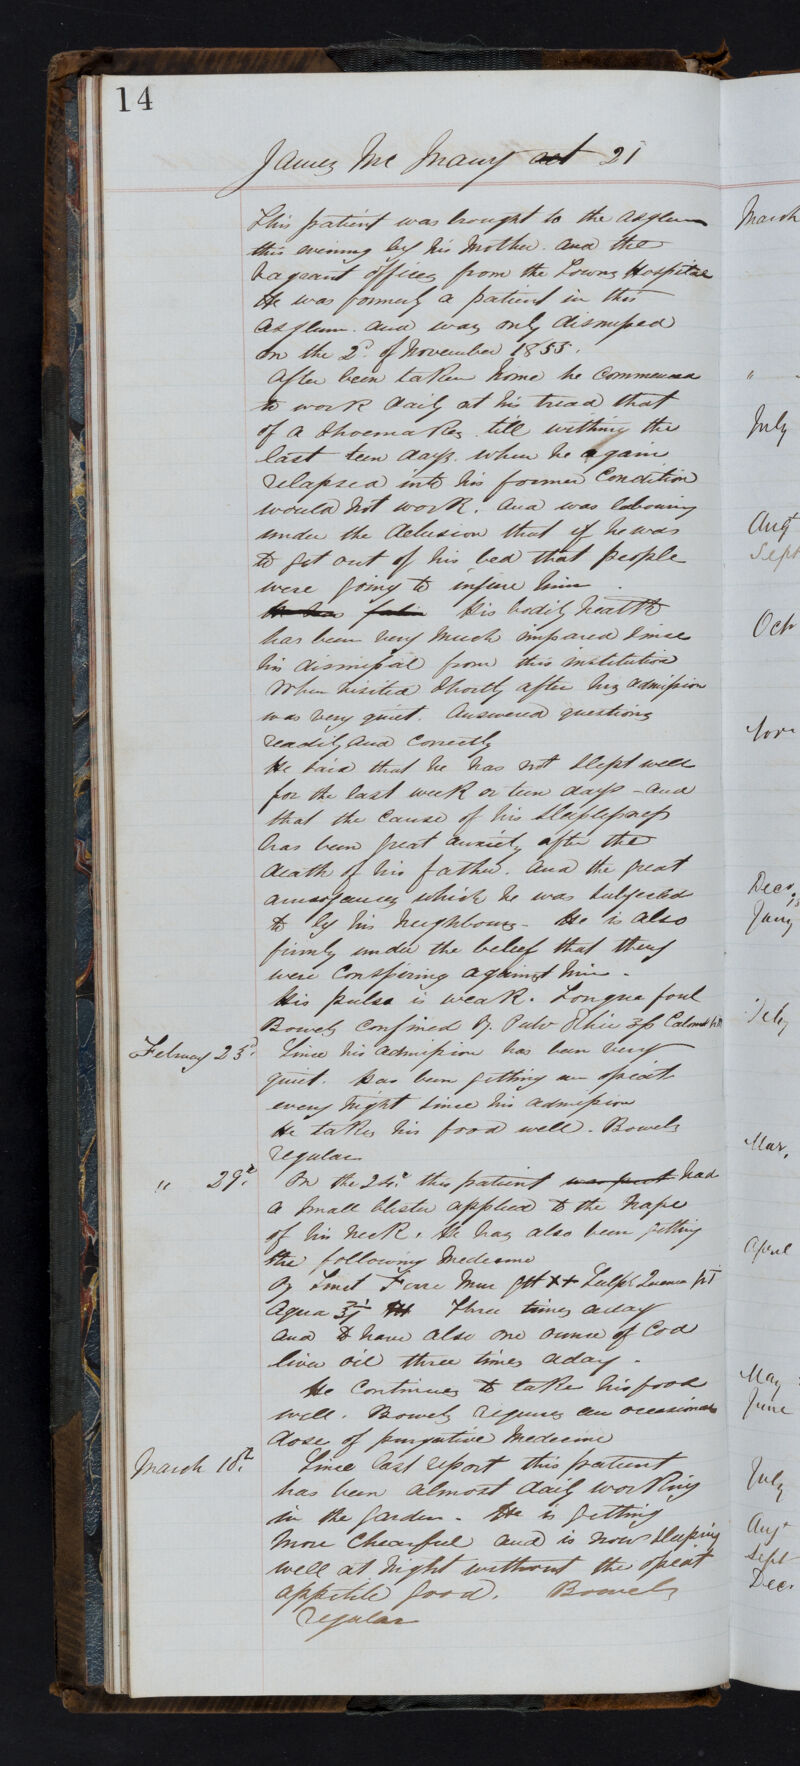 14
James Mc Inary aet 21
This patient was brought to the asylum
this evening by his Mother. and the
Vagrant officer from the Towns Hospital
He was formerly a patient in this
asylum. and was only dismissed
on the 2d. of November 1855.
After been taken home he commenced
to work daily at his tread that
of a shoemaker. till withing the
last teen days. when he again
relapsed into his former Condition
would not work. and was labouring
under the delusion that if he was
to get out of his bed that people
were going to injure him
He has His bodily health
has been very much impared since
his dismissal from this institution
When visited shortly after his admission
was very quiet. Answered questions
readily and correctly
He said that he has not slept well
for the last week or teen days - and
that the cause of his sleeplessness
has been great anxiety after the
death of his father. And the great
annoyances which he was subjected
to by his neighbours - He is also
firmly under the belief that they
were conspiring against him -
His pulse is weak. Tongue foul
Bowels confined Rx Pulv Rhei Calomel
Febuary 23d. Since his admission has been very
quiet. Has been getting an opeat
every night since his admission
He takes his food well. Bowels
regular
" 29th. On the 24th this patient was had
a small blister applied to the nape
of his neck. He has also been getting
the following Medecine
Rx Tinct Ferri Mur gtt xx Sulph Quinea gr i
Aqua Three times aday
and to have also one ounce of Cod
liver oil three times aday.
He continues to take his food
well. Bowels requires an occasional
dose of purgative Medecine
March 18th. Since last report this patient
has been almost daily working
in the garden. He is getting
more chearful and is now sleeping
well at night without the opeat
appetite good. Bowels
regular
March
"
July
Augt
Sept
Oct
Nov
Decr
Jany
Feby
Mar,
April
May
June
July
Augt
Sept
Dec.